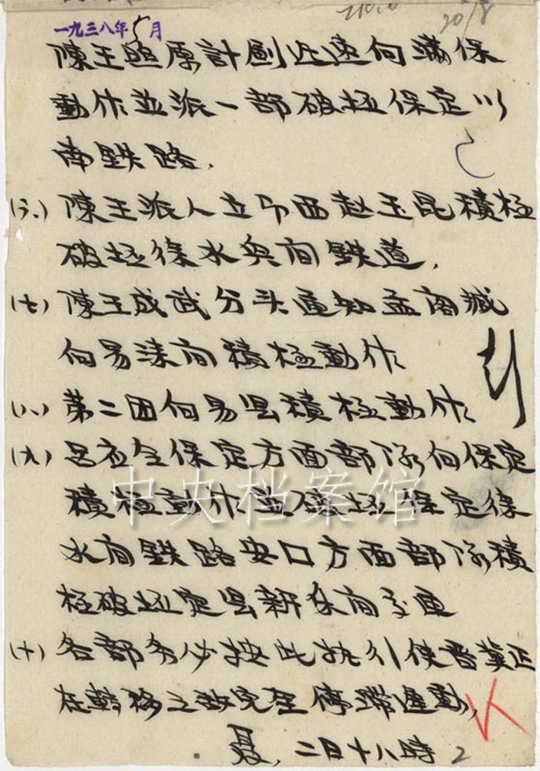 一九三八年5月
20/8
陳王照原計劃迅速向滿保
動作並派一部破坏保定以
南鉄路.
(六) 陳王派人立即要赵玉昆積極
破坏徐水與間鉄道.
(七) 陳王成武分头通知孟阁臧
向易涞间積極動作
(八) 第二团向易县積極動作
(九) 吕应令保定方面部队向保定
積極動作並破坏保定徐
水间鉄路安口方面部队積
極破坏定县新乐间交通
(十) 各部务必按此执行使晋冀正
在轉移之敌完全停滞運動,
聂, 二日十八時
中央档案馆